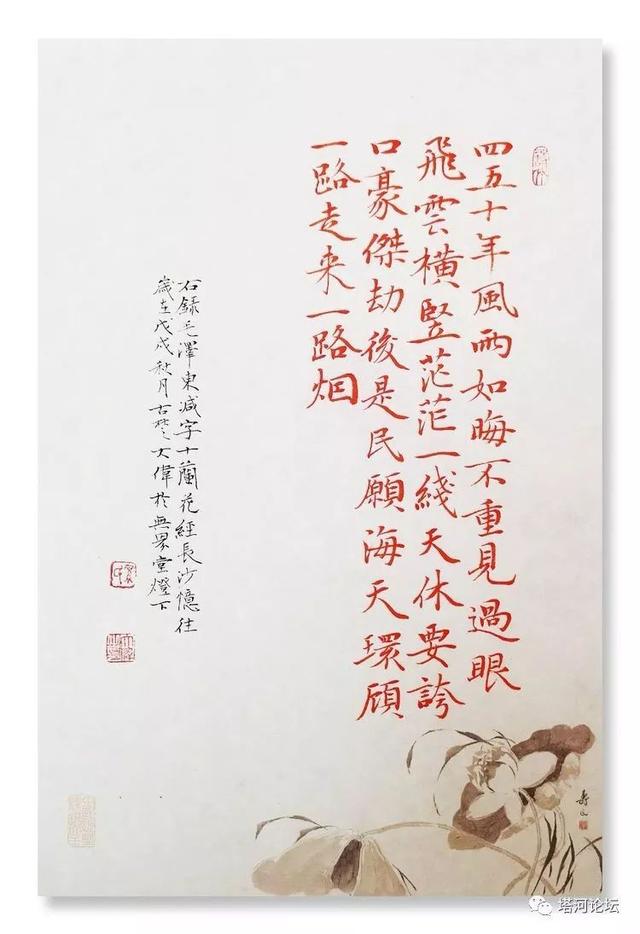 四五十年風雨如晦不重見過眼
飛雲橫竪茫茫一綫天休要誇
口豪傑劫後是民願海天環顧
一路走来一路烟
右錄毛澤東減字木蘭花經長沙憶往
歲在戊戌秋月古楚大偉於無界堂燈下
塔河论坛